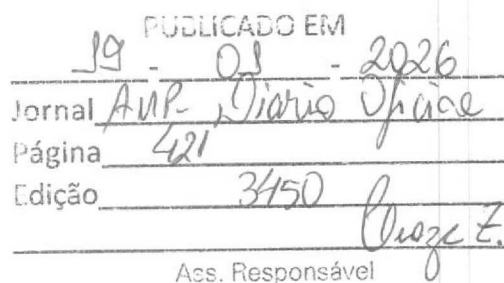 PUBLICADO EM
19 - 01 - 2026
Jornal AMP- Diário Oficial
Página 421
Edição 3450
Ass. Responsável